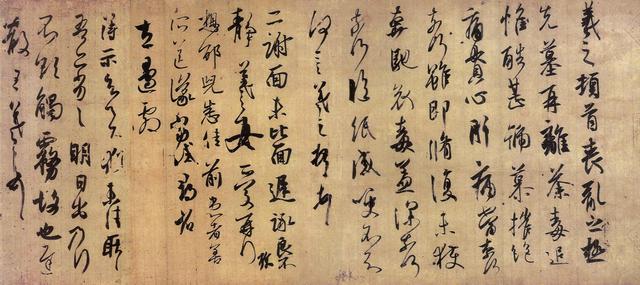 羲之頓首喪亂之極
先墓再離荼毒追
惟酷甚號慕摧絕
痛貫心肝痛當奈何
奈何雖即脩復未獲
奔馳哀毒益深奈何
奈何臨紙感哽不知
何言羲之頓首頓首
二謝面未比面遲詠良不
靜羲之女愛再拜
想兒悉佳前患者善
所送議當試尋省
左邊劇
得示知足下猶未佳耿耿
吾亦劣劣明日出乃行
不欲觸霧故也遲
散王羲之頓首